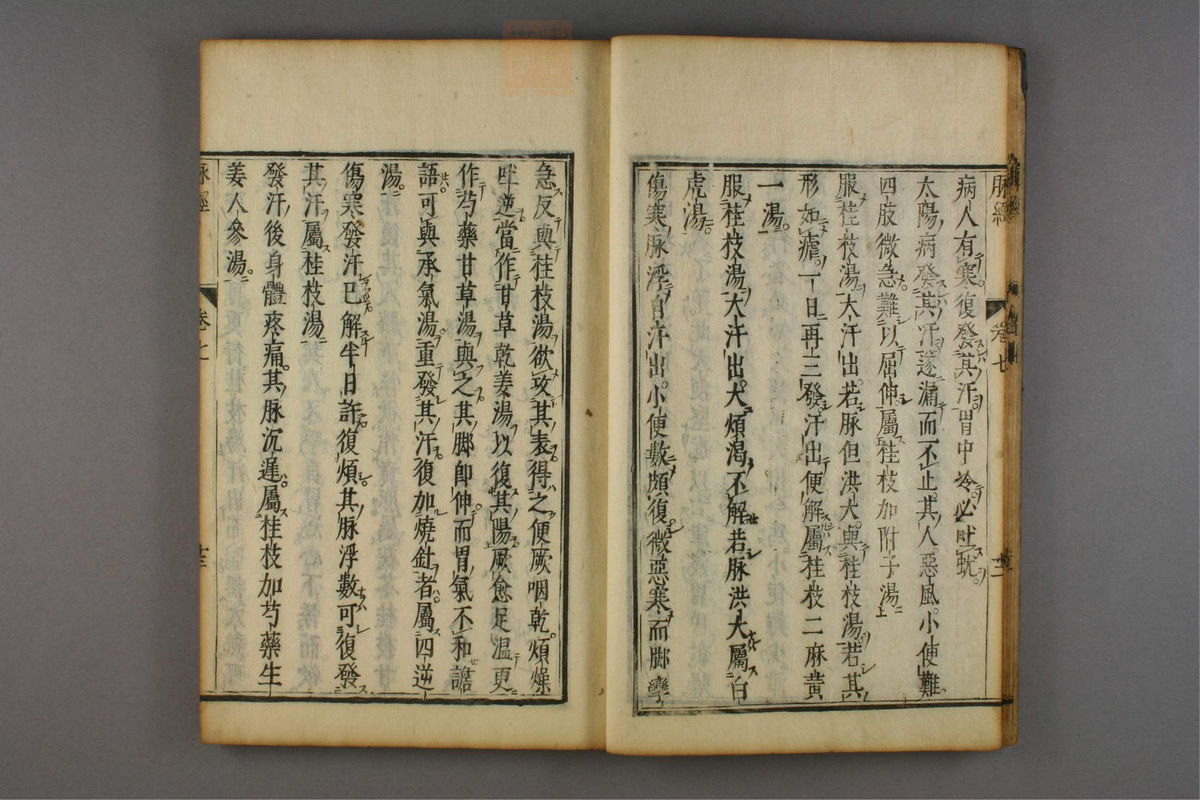 脉經　卷七　十二
病人有寒復發其汗胃中冷必吐蚘
太陽病發其汗遂漏而不止其人惡風小便難
四肢微急難以屈伸屬桂枝加附子湯
服桂枝湯大汗出若脉但洪大與桂枝湯若其
形如瘧一日再三發汗出便解屬桂枝二麻黄
一湯
服桂枝湯大汗出大煩渴不解若脉洪大屬白
虎湯
傷寒脉浮自汗出小便數頗復微惡寒而脚攣
急反與桂枝湯欲攻其表得之便厥咽乾煩燥
吐逆當作甘草乾姜湯以復其陽厥愈足温更
作芍藥甘草湯與之其脚卽伸而胃氣不和譫
語可與承氣湯重發其汗復加燒針者屬四逆
湯
傷寒發汗已解半日許復煩其脉浮數可復發
其汗屬桂枝湯
發汗後身體疼痛其脉沉遲屬桂枝加芍藥生
姜人參湯
脉經　卷七　十三